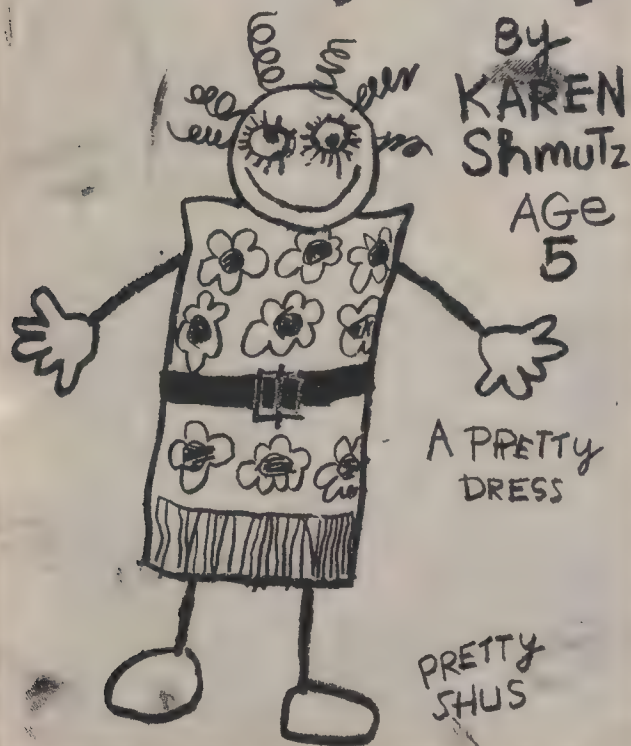 By
KAREN
ShmuTz
AGe
5
A PRETTY
DRESS
PRETTY
SHUS